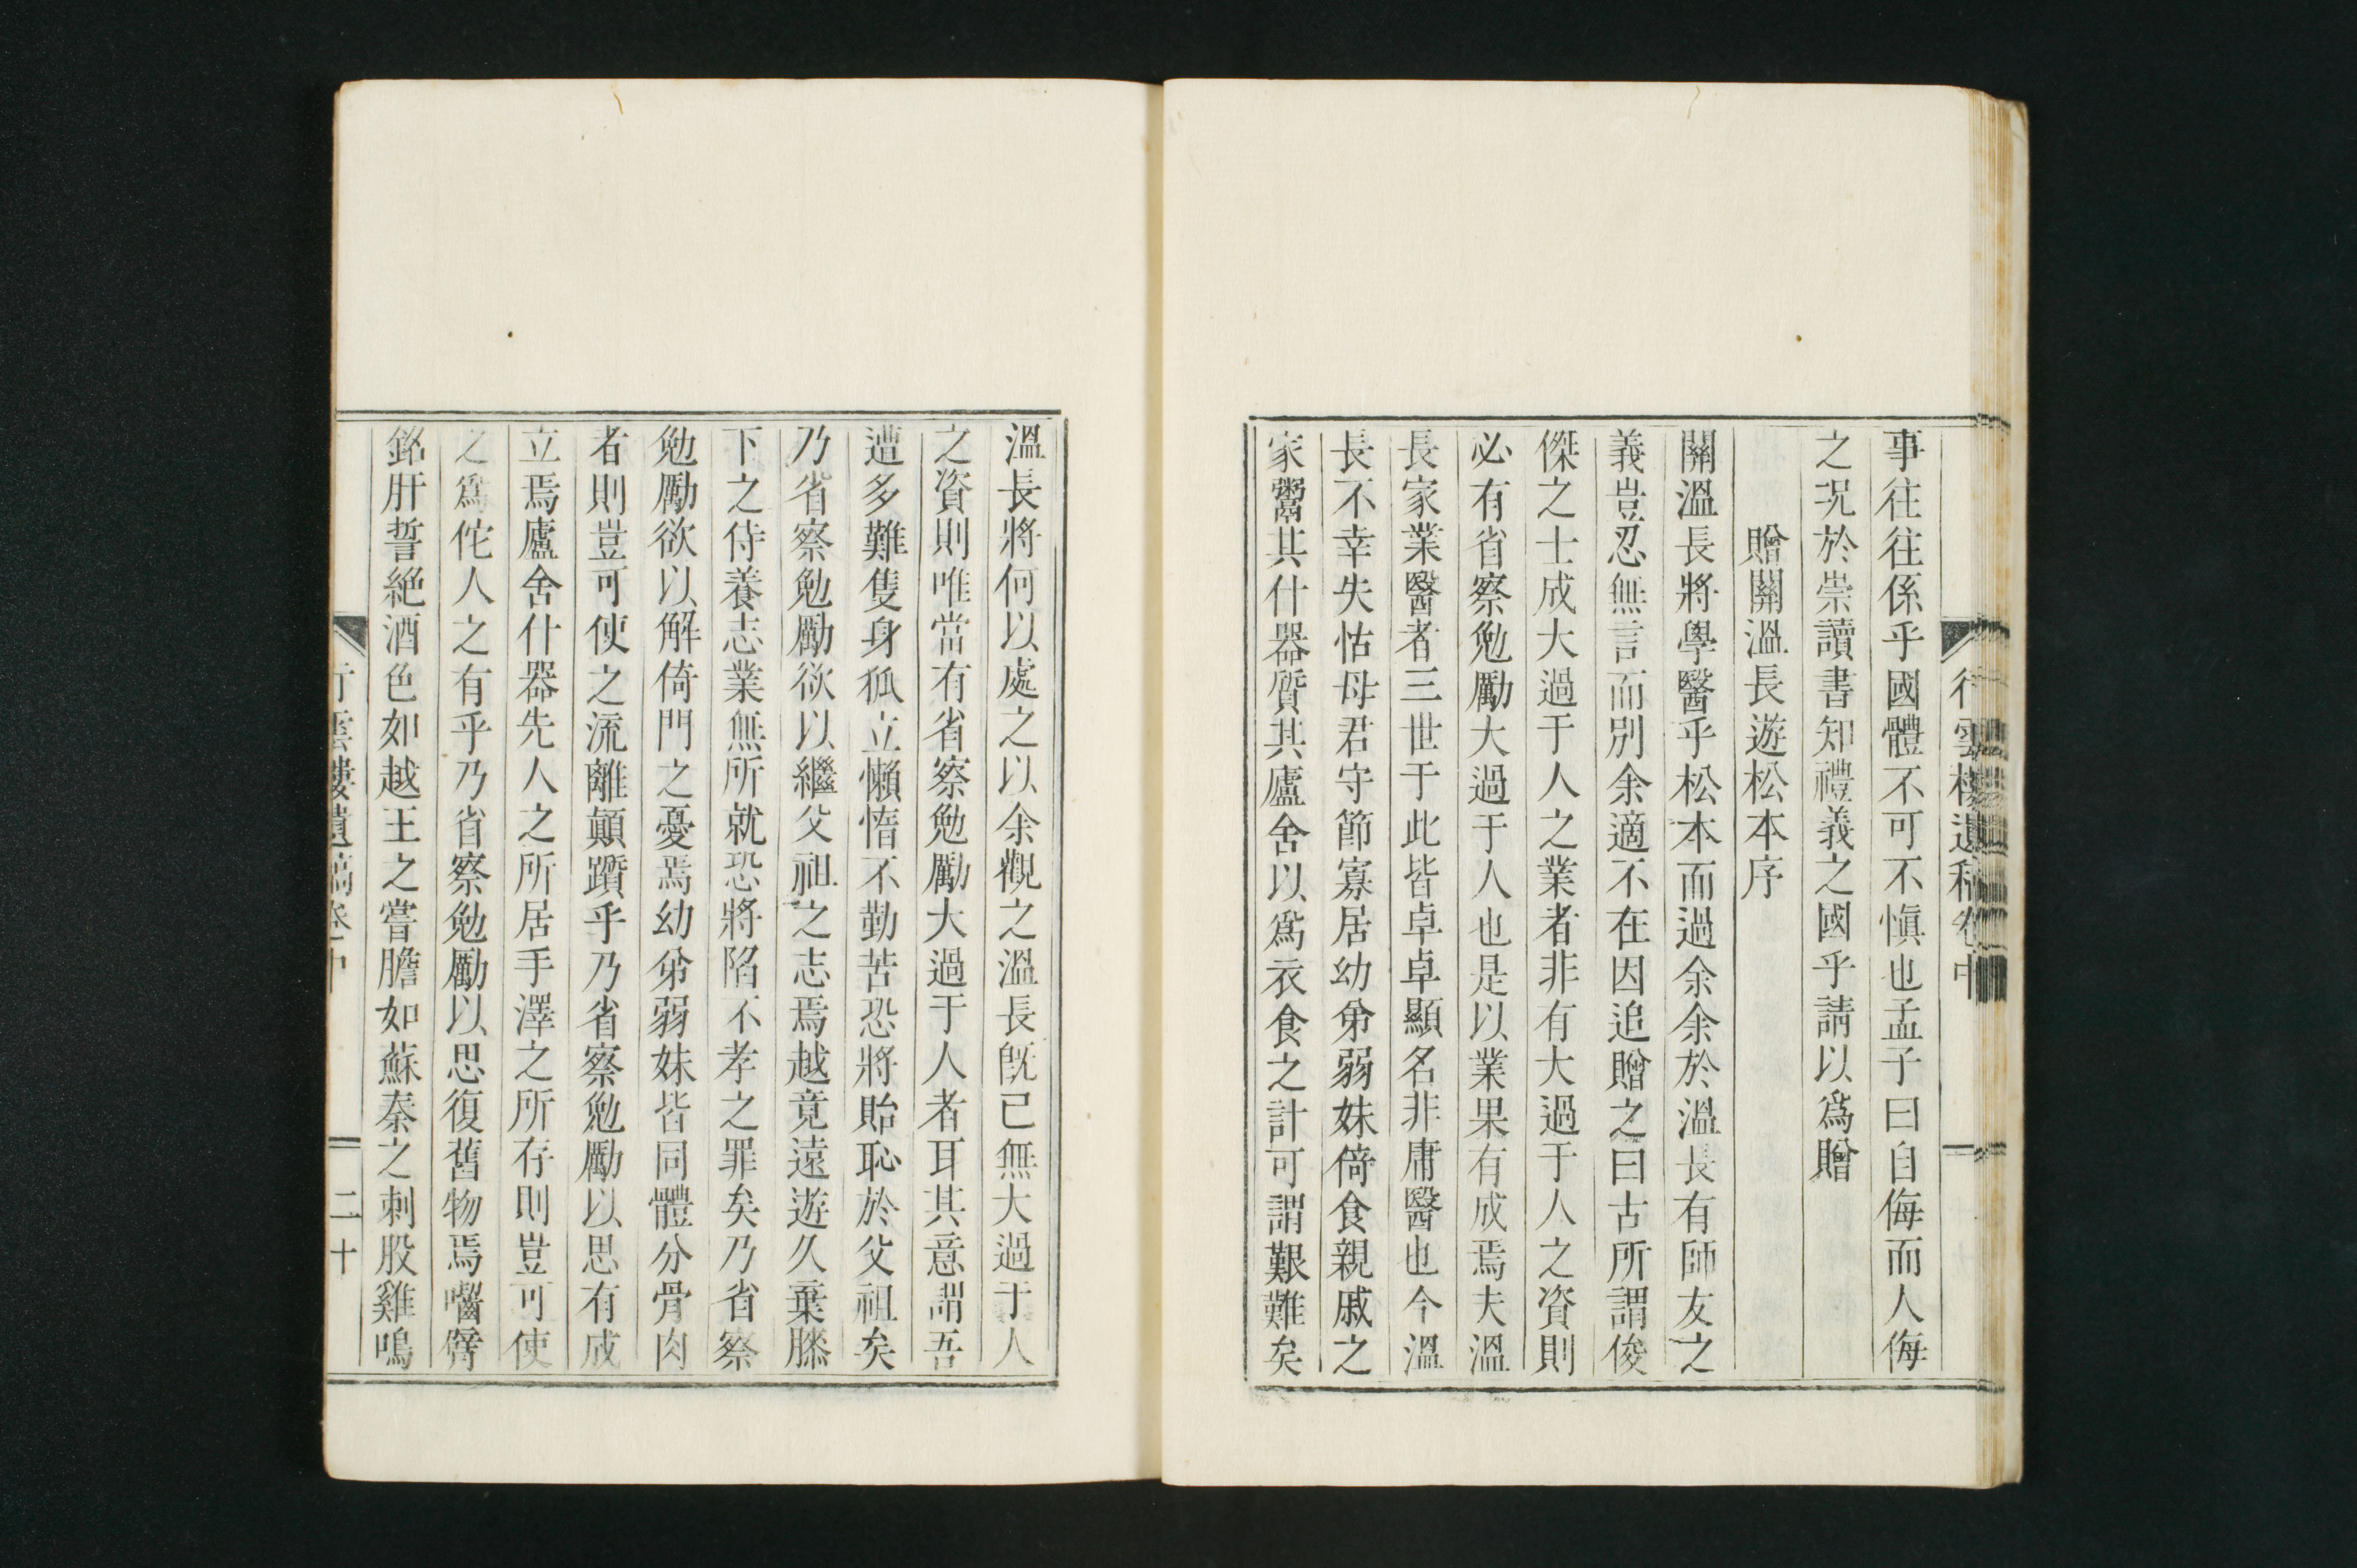 行雲樓遺稿卷中
事往往係乎國體不可不愼也孟子曰自侮而人侮
之況於崇讀書知禮義之國乎請以爲贈
贈關溫長遊松本序
關溫長將學醫乎松本而過余余於溫長有師友之
義豈忍無言而別余適不在因追贈之曰古所謂俊
傑之士成大過于人之業者非有大過于人之資則
必有省察勉勵大過于人也是以業果有成焉夫溫
長家業醫者三世于此皆卓卓顯名非庸醫也今溫
長不幸失怙母君守節寡居幼弟弱妹倚食親戚之
家鬻其什器質其廬舍以爲衣食之計可謂艱難矣
溫長將何以處之以余觀之溫長既已無大過于人
之資則唯當有省察勉勵大過于人者耳其意謂吾
遭多難隻身孤立懶惰不勤苦恐將貽恥於父祖矣
乃省察勉勵欲以繼父祖之志焉越竟遠遊久棄膝
下之侍養志業無所就恐將陷不孝之罪矣乃省察
勉勵欲以解倚門之憂焉幼弟弱妹皆同體分骨肉
者則豈可使之流離顛躓乎乃省察勉勵以思有成
立焉廬舍什器先人之所居手澤之所存則豈可使
之爲佗人之有乎乃省察勉勵以思復舊物焉囓臂
銘肝誓絕酒色如越王之嘗膽如蘇秦之刺股雞鳴
行雲樓遺稿卷中 二十